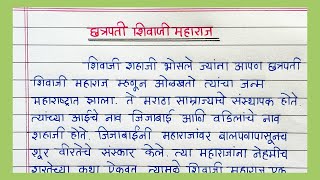 छत्रपती शिवाजी महाराज
शिवाजी शहाजी भोसले ज्यांना आपण छत्रपती
शिवाजी महाराज म्हणून ओळखतो त्यांचा जन्म
महाराष्ट्रात झाला. ते मराठा साम्राज्याचे संस्थापक होते
त्यांच्या आईचे नाव जिजाबाई आणि वडिलांचे नाव
शहाजी होते. जिजाबाईंनी महाराजांवर बालपणापासूनच
शूर वीरतेचे संस्कार केले. त्या महाराजांना नेहमीच
शूरतेच्या कथा ऐकवत. त्यामुळे शिवाजी महाराज एक